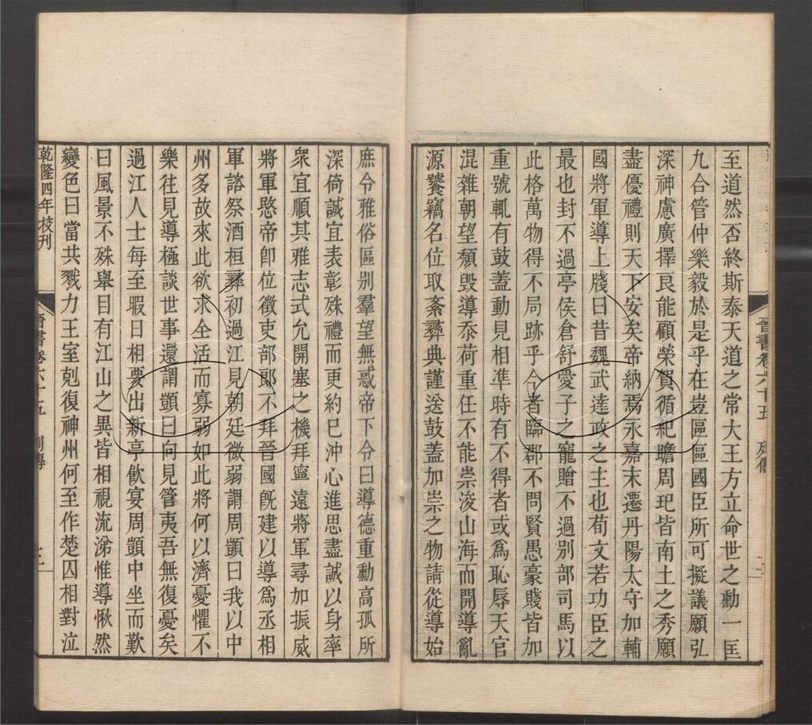 至道然否終斯泰天道之常大王方立命世之勳一匡
九合管仲樂毅於是乎在豈區區國臣所可擬議願弘
深神慮廣擇良能顧榮賀循紀瞻周玘皆南土之秀願
盡優禮則天下安矣帝納焉永嘉末遷丹陽太守加輔
國將軍導上牋曰昔魏武達政之主也荀文若功臣之
最也封不過亭侯倉舒愛子之寵贈不過別部司馬以
此格萬物得不局跡乎今者臨郡不問賢愚豪賤皆加
重號輒有鼓蓋動見相準時有不得者或爲恥辱天官
混雜朝望頹毀導忝荷重任不能崇浚山海而開導亂
源饕竊名位取紊彝典謹送鼓蓋加崇之物請從導始
晉書卷六十五 列傳
庶令雅俗區別羣望無惑帝下令曰導德重勳高孤所
深倚誠宜表彰殊禮而更約己沖心進思盡誠以身率
衆宜順其雅志式允開塞之機拜寧遠將軍尋加振威
將軍愍帝卽位徵吏部郎不拜晉國旣建以導爲丞相
軍諮祭酒桓彝初過江見朝廷微弱謂周顗曰我以中
州多故來此欲求全活而寡弱如此將何以濟憂懼不
樂往見導極談世事還謂顗曰向見管夷吾無復憂矣
過江人士每至暇日相要出新亭飮宴周顗中坐而歎
曰風景不殊舉目有江山之異皆相視流涕惟導愀然
變色曰當共戮力王室剋復神州何至作楚囚相對泣
乾隆四年校刊
晉書卷六十五 列傳